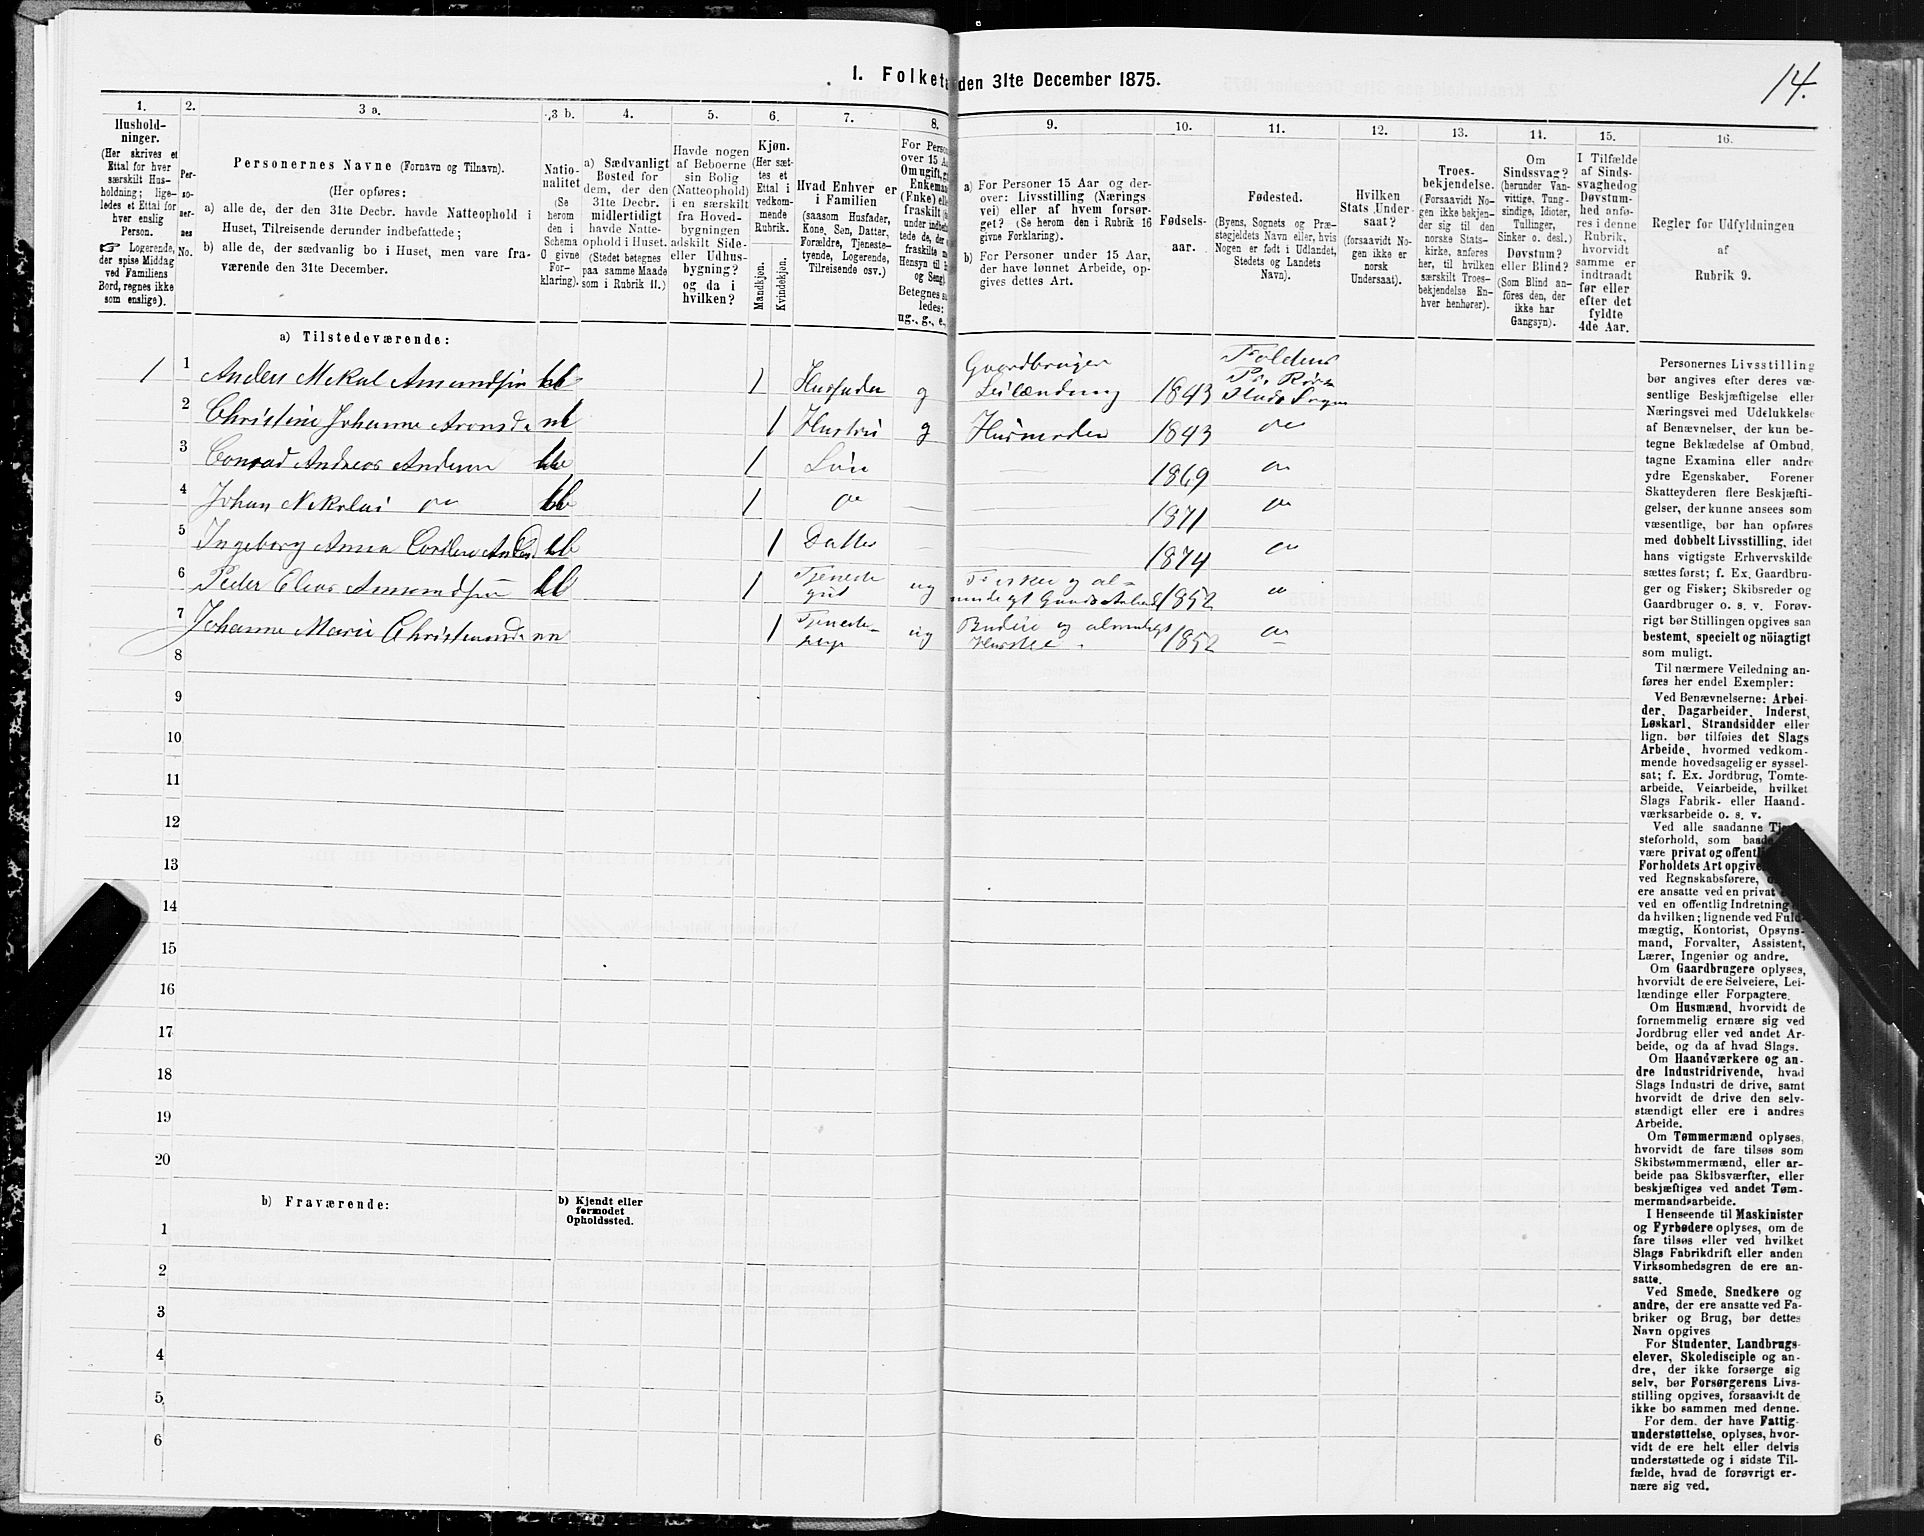 1. Folket den 31te December 1875.
14.
1.
Hushold-
ninger.
(Her skrives et
Ettal for hver
særskilt Hus-
holdning; lige-
ledes et Ettal for
hver enslig
Person.
☞ Logerende,
der spise Middag
ved Familiens
Bord, regnes ikke
som enslige).
2.
Per-
so-
ner-
nes
No.
3 a.
Personernes Navne (Fornavn og Tilnavn).
(Her opføres:
a) alle de, der den 31te Decbr. havde Natteophold i
Huset, Tilreisende derunder indbefattede;
b) alle de, der sædvanlig bo i Huset, men vare fra-
værende den 31te December.
3 b.
Natio-
nalitet
(Se
herom
den i
Schema
O givne
For-
klaring).
4.
a) Sædvanligt
Bosted for
dem, der den
31te Decbr.
midlertidigt
havde Natte-
ophold i Huset.
(Stedet betegnes
paa samme Maade
som i Rubrik 11.)
5.
Havde nogen
af Beboerne
sin Bolig
(Natteophold)
i en særskilt
fra Hoved-
bygningen
adskilt Side-
eller Udhus-
bygning?
og da i
hvilken?
6.
Kjøn.
(Her sæt-
tes et
Ettal i
vedkom-
mende
Rubrik.
Mandkjøn.
Kvindekjøn.
7.
Hvad Enhver er
i Familien
(saasom Husfader,
Kone, Søn, Datter,
Forældre, Tjeneste-
tyende, Logerende,
Tilreisende osv.)
8.
For Perso
over 15 A
Om ugift, g
Enkema
(Enke) elle
fraskilt (
under indbe
tede de, de
fraskilte m
Hensyn til
og Seng)
Betegnes s
ledes:
ug., g., e.,
9.
a) For Personer 15 Aar og der-
over: Livsstilling (Nærings
vei) eller af hvem forsør-
get? (Se herom den i Rubrik 16
givne Forklaring).
b) For Personer under 15 Aar,
der have lønnet Arbeide, op-
gives dettes Art.
10.
Fødsels-
aar.
11.
Fødested.
(Byens, Sognets og Præ-
stegjeldets Navn eller, hvis
Nogen er født i Udlandet,
Stedets og Landets
Navn).
12.
Hvilken
Stats Under-
saat?
(forsaavidt No-
gen ikke er
norsk
Undersaat).
13.
Troes-
bekjendelse.
(Forsaavidt No-
gen ikke bekjen-
der sig til den
norske Stats-
kirke, anføres
her, til hvilken
særskilt Troes-
bekjendelse En-
hver henhører).
14.
Om
Sindssvag?
(herunder Van-
vittige, Tung-
sindige, Idioter,
Tullinger,
Sinker o. desl.)
Døvstum?
eller Blind?
(Som Blind an-
føres den, der
ikke har
Gangsyn).
15.
I Tilfælde
af Sinds-
svaghedog
Døvstum-
hed anfø-
res i denne
Rubrik,
hvorvidt
samme er
indtraadt
før eller
efter det
fyldte
4de Aar.
16.
Regler for Udfyldningen
af
Rubrik 9.
a) Tilstedeværende:
1 1 Anders Mekal Amundsen 1 Husfader g Gaardbruger Leilænding 1843 Foldens
2 Christine Johanne Aronsd. 1 Hustru g 1843
3 Conrad Andreas Andersen 1 Søn 1869
4 Johan Nikolai 1 1871
5 Ingeborg Anna 1 Datter 1874
6 Peder Elias Amundsen 1 Tjeneste gut ug Fisker og al- 1852
7 Johanne Marie Christiansd. 1 Tjeneste- ug Budeie og 1852
8
9
10
11
12
13
14
15
16
17
18
19
20
b) Fraværende:
b) Kjendt eller
formodet
Opholdssted.
1
2
3
4
5
6
Personernes Livsstilling
bør angives efter deres væ-
sentlige Beskjæftigelse eller
Næringsvei med Udelukkelse
af Benævnelser, der kun be-
tegne Beklædelse af Ombud,
tagne Examina eller andre
ydre Egenskaber. Forener
Skatteyderen flere Beskjæfti-
gelser, der kunne ansees som
væsentlige, bør han opføres
med dobbelt Livsstilling, idet
hans vigtigste Erhvervskilde
sættes først; f. Ex. Gaardbru-
ger og Fisker; Skibsreder og
Gaardbruger o. s. v. Forøv-
rigt bør Stillingen opgives saa
bestemt, specielt og nöiagtigt
som muligt.
Til nærmere Veiledning an-
føres her endel Exempler:
Ved Benævnelserne: Arbei-
der, Dagarbeider, Inderst,
Løskarl, Strandsidder eller
lign. bør tilføies det Slags
Arbeide, hvormed vedkom-
mende hovedsagelig er syssel-
sat; f. Ex. Jordbrug, Tomte-
arbeide, Veiarbeide, hvilket
Slags Fabrik- eller Haand-
værksarbeide o. s. v.
Ved alle saadanne
steforhold, som
være privat og offentli
Forholdets Art opgive
ved Regnskabsførere,
ere ansatte ved en privat
ved en offentlig Indretning
da hvilken; lignende ved Fuld-
mægtig, Kontorist, Opsyns-
mand, Forvalter, Assistent,
Lærer, Ingeniør og andre.
Om Gaardbrugere oplyses,
hvorvidt de ere Selveiere, Lei-
lændinge eller Forpagtere.
Om Husmænd, hvorvidt de
fornemmelig ernære sig ved
Jordbrug eller ved andet Ar-
beide, og da af hvad Slags.
Om Haandværkere og an-
dre Industridrivende, hvad
Slags Industri de drive, samt
hvorvidt de drive den selv-
stændigt eller ere i andres
Arbeide.
Om Tømmermænd oplyses,
hvorvidt de fare tilsøs som
Skibstømmermænd, eller ar-
beide paa Skibsværfter, eller
beskjæftiges ved andet Tøm-
mermandsarbeide.
I Henseende til Maskinister
og Fyrbødere oplyses, om de
fare tilsøs eller ved hvilket
Slags Fabrikdrift eller anden
Virksomhedsgren de ere an-
satte.
Ved Smede, Snedkere og
andre, der ere ansatte ved Fa-
briker og Brug, bør dettes
Navn opgives
For Studenter, Landbrugs-
elever, Skoledisciple og an-
dre, der ikke forsørge sig
selv, bør Forsørgerens Livs-
stilling opgives, forsaavidt de
ikke bo sammen med denne.
For dem, der have Fattig-
understøttelse, oplyses, hvor-
vidt de ere helt eller delvis
understøttede og i sidste Til-
fælde, hvad de forøvrigt er-
nære sig ved.